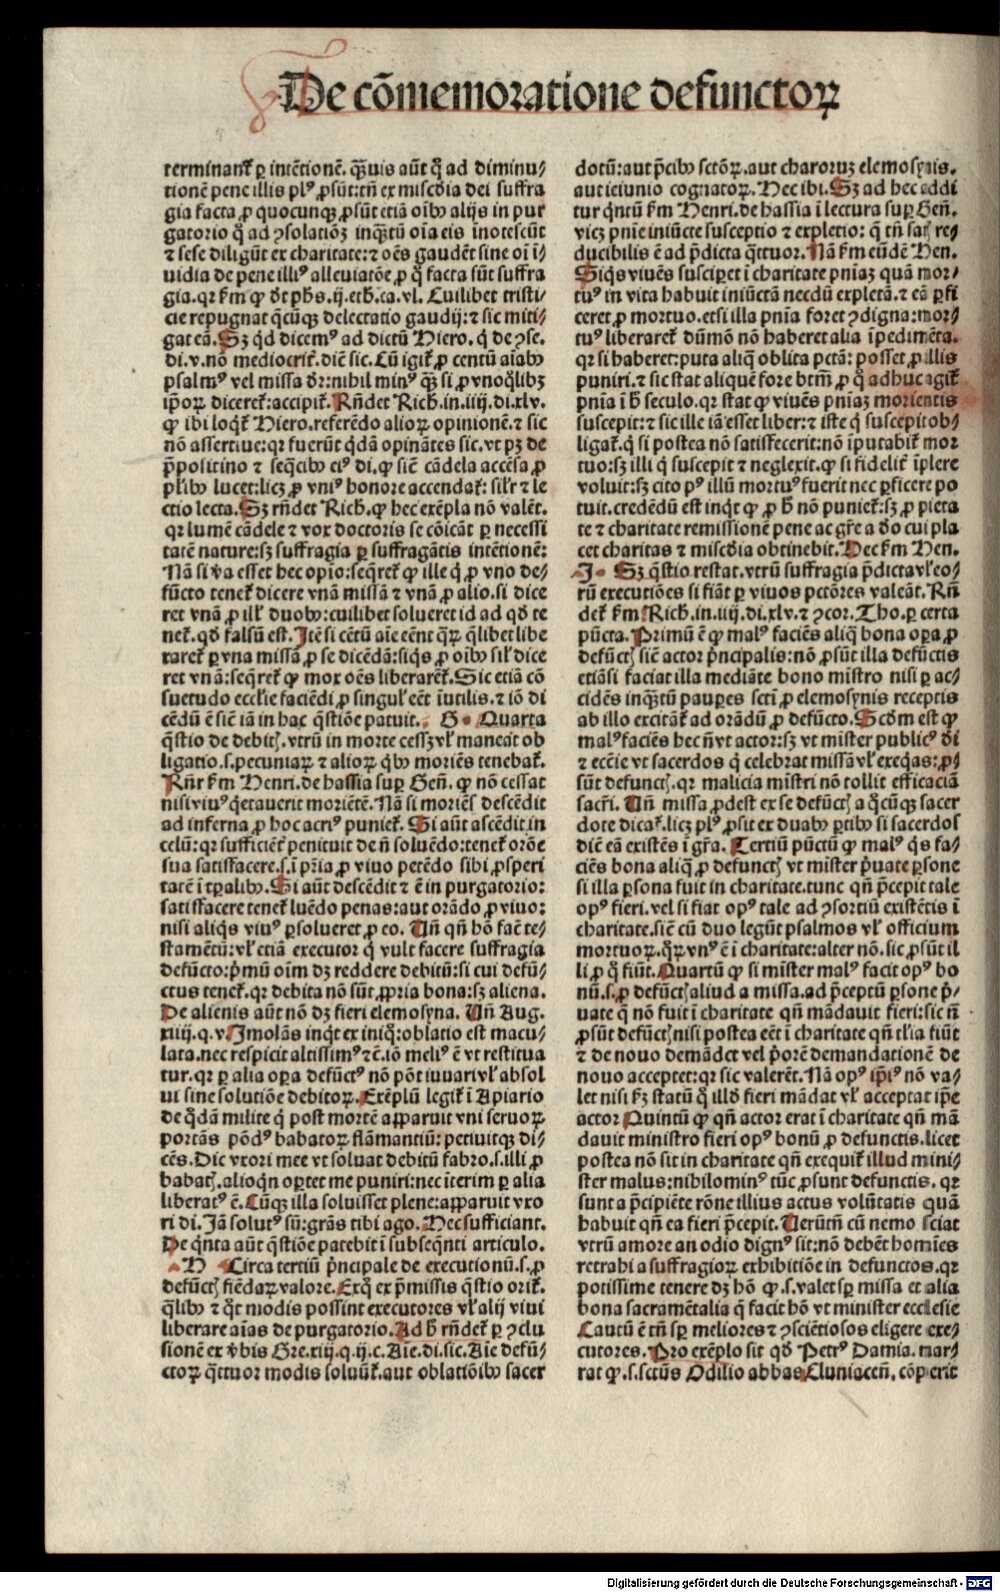 De cōmemoratione defunctoꝝ
terminant᷑ ꝑ intētionē. qͣꝫuis aūt qͦ ad diminu⸗
tionē pene illis plꝰ ꝓsūt: tn̄ ex mīscd̓ia dei suffra
gia facta ꝓ quocunqꝫ ꝓsūt etiā oībꝰ alijs in pur
gatorio qͦ ad ꝯsolationē inqͣꝫtū oīa eis inotescūt
⁊ sese diligūt ex charitate: ⁊ oēs gaudēt sine oī ī⸗
uidia de pene illiꝰ alleuiatōe ꝓ qͦ facta sūt suffra
gia. qꝛ ẜm ꝙ dt̄ phs̄. ij. eth. ca. vl. Cuilibet tristi⸗
cie repugnat qͣcūqꝫ delectatio gaudij: ⁊ sic miti⸗
gat eā. Sꝫ qͥd dicemꝰ ad dictū Hiero. qͥ de ꝯse.
di. v. nō mediocrit᷑. diē sic. Cū igit᷑ ꝓ centū aīabꝰ
psalmꝰ vel missa dr̄: nihil minꝰ qͣꝫ si ꝓ vnoqͦlibꝫ
ip̄oꝝ diceret᷑: accipit᷑. Rn̄det Rich. in. iiij. di. xlv.
ꝙ ibi loqͥt᷑ Hiero. referēdo alioꝝ opinionē. ⁊ sic
nō assertiue: qꝛ fuerūt qͥdā opinātes sic. vt pꝫ de
p̄positino ⁊ seqͣcibꝰ eiꝰ di. ꝙ sic̄ cādela accēsa ꝓ
pl̓ibꝰ lucet: licꝫ ꝓ vniꝰ honore accendat᷑: sil̓r ⁊ le
ctio lecta. Sꝫ rn̄det Rich. ꝙ hec exēpla nō valēt.
qꝛ lumē cādele ⁊ vox doctoris se cōicāt ꝑ necessi
tatē nature: sꝫ suffragia ꝑ suffragātis intētionē:
Nā si v̓a esset hec opīo: seqͥret᷑ ꝙ ille qͥ ꝓ vno de⸗
fūcto tenet᷑ dicere vnā missā ⁊ vnā ꝓ alio. si dice
ret vnā ꝓ ill̓ duobꝰ: cuilibet solueret id ad qd̓ te
net᷑. qd̓ falsū est. Itē si cētū aīe eēnt qͣꝝ qͥlibet libe
raret᷑ ꝑ vna missā ꝓ se dicēdā: siqͥs ꝓ oībꝰ sil̓ dice
ret vnā: seqͥret᷑ ꝙ mox oēs liberarēt᷑. Sic etiā cō
suetudo eccl̓ie faciēdi ꝓ singul̓ eēt īutilis. ⁊ iō di
cēdū ē sic̄ iā in hac qͣstiōe patuit. G Quarta
qͣstio de debitꝭ. vtrū in morte cessꝫ vl̓ maneāt ob
ligatio. s. pecuniaꝝ ⁊ alioꝝ qͥbꝰ moriēs tenebat᷑.
Rn̄r ẜm Henri. de hassia suꝑ Gen̄. ꝙ nō cessat
nisi viuꝰ qͥetauerit moriētē. Nā si moriēs descēdit
ad inferna ꝓ hoc acriꝰ puniet᷑. Si aūt ascēdit in
celū: qꝛ sufficiēt᷑ penituit de n̄ soluēdo: tenet᷑ orōe
sua satisfacere. s. ī pr̄ia ꝓ viuo petēdo sibi ꝓsperi
tatē ī tꝑalibꝰ. Si aūt descēdit ⁊ ē in purgatorio:
satisfacere tenet᷑ luēdo penas: aut orādo ꝓ viuo:
nisi aliqͥs viuꝰ ꝑsolueret ꝓ eo. Un̄ qn̄ hō faē te⸗
stamētū: vl̓ etiā executor qͥ vult facere suffragia
defūcto: pͥmū oīm dꝫ reddere debitū: si cui defū⸗
ctus tenet᷑. qꝛ debita nō sūt ꝓpria bona: sꝫ aliena.
De alienis aūt nō dꝫ fieri elemosyna. Un̄ Aug.
xiiij. q. v. Imolās inqͥt ex iniqͦ: oblatio est macu⸗
lata. nec respicit altissimꝰ ⁊c̄. iō meliꝰ ē vt restitua
tur. qꝛ ꝑ alia oꝑa defūctꝰ nō pōt iuuari vl̓ absol
ui sine solutiōe debitoꝝ. Exēplū legit᷑ ī Apiario
de qͦdā milite qͥ post mortē apparuit vni seruoꝝ
portās pōdꝰ babatoꝝ flāmantiū: petiuitqꝫ di⸗
cēs. Dic vxori mee vt soluat debitū fabro. s. illi ꝓ
babatꝭ. alioqn̄ oꝑtet me puniri: nec īterim ꝑ alia
liberatꝰ ē. Cūqꝫ illa soluisset plene: apparuit vxo
ri di. Iā solutꝰ sū: grās tibi ago. Hec sufficiant.
De qͥnta aūt qͣstiōe patebit ī subseqͣnti articulo.
H Circa tertiū pͥncipale de executionū. s. ꝓ
defūctꝭ fiēdaꝝ valore. Exqͦ ex p̄missis qͣstio orit᷑.
qͣlibꝰ ⁊ qͦt modis possint executores vl̓ alij viui
liberare aīas de purgatorio. Ad h̓ rn̄det᷑ ꝑ ꝯclu
sionē ex v̓bis Gre. xiij. q. ij. c. Aīe. di. sic. Aīe defū⸗
ctoꝝ qͣttuor modis soluūt᷑. aut oblatiōibꝰ sacer
dotū: aut p̄cibꝰ sctōꝝ. aut charoruꝫ elemosynis.
aut ieiunio cognatoꝝ. Hec ibi. Sꝫ ad hec addi
tur qͥntū ẜm Henri. de hassia ī lectura suꝑ Gen̄.
vicꝫ pnīe iniūcte susceptio ⁊ expletio: qͥ tn̄ satꝭ re⸗
ducibilis ē ad p̄dicta qͣttuor. Nā ẜm eūdē Hen.
Siqͥs viuēs susciꝑet ī charitate pnīaꝫ quā mor⸗
tuꝰ in vita habuit iniūctā necdū expletā. ⁊ eā ꝑfi
ceret ꝓ mortuo. etsi illa pnīa foret ꝯdigna: mor⸗
tuꝰ liberaret᷑ dūmō nō haberet alia īpedimēta.
qꝛ si haberet: puta aliqͣ oblita pctā: posset ꝓ illis
puniri. ⁊ sic stat aliquē fore btm̄ ꝓ qͦ adhuc agit᷑
pnīa ī h̓ seculo. qꝛ stat ꝙ viuēs pnīaꝫ morientis
suscepit: ⁊ sic ille iā esset liber: ⁊ iste qͥ suscepit ob⸗
ligat᷑. qͥ si postea nō satisfecerit: nō īputabit᷑ mor
tuo: sꝫ illi qͥ suscepit ⁊ neglexit. ꝙ si fidelit᷑ īplere
voluit: sꝫ cito pꝰ illū mortuꝰ fuerit nec ꝑficere po
tuit. credēdū est inqͥt ꝙ ꝓ h̓ nō puniet᷑: sꝫ ꝓ pieta
te ⁊ charitate remissionē pene ac gr̄e a d̓o cui pla
cet charitas ⁊ mīscd̓ia obtinebit. Hec ẜm Hen.
I Sꝫ qͣstio restat. vtrū suffragia p̄dicta vl̓ eo⸗
rū executiōes si fiāt ꝑ viuos pctōres valeāt. Rn̄
det᷑ ẜm Rich. in. iiij. di. xlv. ⁊ ꝯcor. Tho. ꝑ certa
pūcta. Primū ē ꝙ malꝰ faciēs aliqͣ bona oꝑa ꝓ
defūctꝭ sic̄ actor pͥncipalis: nō ꝓsūt illa defūctis
etiāsi faciat illa mediāte bono mīstro nisi ꝑ ac⸗
cidēs inqͣꝫtū pauꝑes scti̅ ꝓ elemosynis receptis
ab illo excitāt᷑ ad orādū ꝓ defūcto. Scd̓m est ꝙ
malꝰ faciēs hec n̄ vt actor: sꝫ vt mīster publicꝰ di
⁊ ecc̄ie vt sacerdos qͥ celebrat missā vl̓ exeqͥas: ꝓ⸗
sūt defunctꝭ. qꝛ malicia mīstri nō tollit efficaciā
sacr̄i. Un̄ missa ꝓdest ex se defūctꝭ a qͦcūqꝫ sacer
dote dicat᷑. licꝫ plꝰ ꝓsit ex duabꝰ ꝑtibꝰ si sacerdos
diē eā existēs ī gr̄a. Tertiū pūctū ꝙ malꝰ qͥs fa⸗
ciēs bona aliqͣ ꝓ defunctꝭ vt mīster pͥuate ꝑsone
si illa ꝑsona fuit in charitate. tunc qn̄ p̄cepit tale
opꝰ fieri. vel si fiat opꝰ tale ad ꝯsortiū existētis ī
charitate. sic̄ cū duo legūt psalmos vl̓ officium
mortuoꝝ. qͦꝝ vnꝰ ē ī charitate: alter nō. sic ꝓsūt il
li ꝓ qͦ fiūt. Quartū ꝙ si mīster malꝰ facit opꝰ bo
nū. s. ꝓ defūctꝭ aliud a missa. ad p̄ceptū ꝑsone pͥ⸗
uate qͥ nō fuit ī charitate qn̄ mādauit fieri: sic n̄
ꝓsūt defūctꝭ nisi postea eēt ī charitate qn̄ tlīa fiūt
⁊ de nouo demādet vel pͥorē demandationē de
nouo acceptet: qꝛ sic valerēt. Nā opꝰ ip̄iꝰ nō va⸗
let nisi ẜꝫ statū qͦ illd̓ fieri mādat vl̓ acceptat ip̄e
actor Quintū ꝙ qn̄ actor erat ī charitate qn̄ mā
dauit ministro fieri opꝰ bonū ꝓ defunctis. licet
postea nō sit in charitate qn̄ exequit᷑ illud mini⸗
ster malus: nihilominꝰ tūc ꝓsunt defunctis. qꝛ
sunt a p̄cipiēte rōne illius actus volūtatis quā
habuit qn̄ ea fieri p̄cepit. Uerūtn̄ cū nemo sciat
vtrū amore an odio dignꝰ sit: nō debēt homīes
retrahi a suffragioꝝ exhibitiōe in defunctos. qꝛ
potissime tenere dꝫ hō ꝙ. s. valet sꝑ missa et alia
bona sacramētalia qͥ facit hō vt minister ecclesie
Cautū ē tn̄ sꝑ meliores ⁊ ꝯsciētiosos eligere exe⸗
cutores. Pro exēplo sit qd̓ Petrꝰ Damia. nar⸗
rat ꝙ. s. sctūs Odilio abbas Cluniacen̄. cōperit
Digitalisierung gefördert durch die Deutsche Forschungsgemeinschaft - DFG